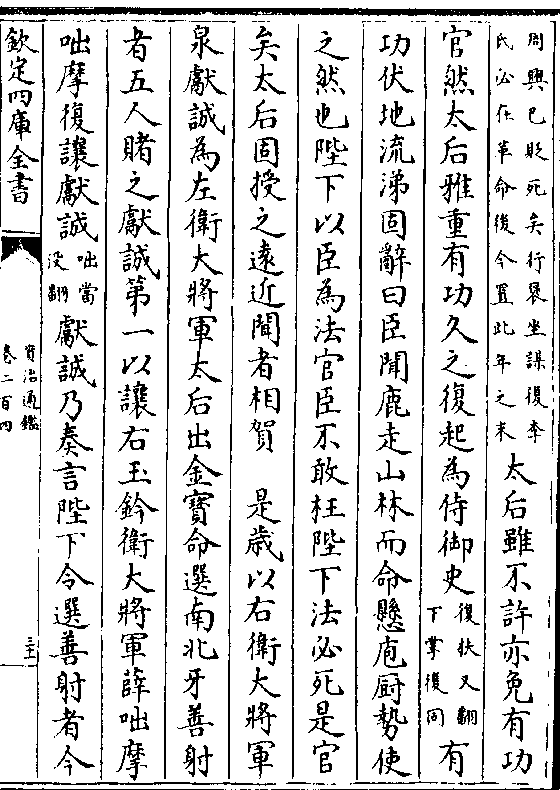 周興已貶死矣行褒坐謀復李
氏必在革命後今置此年之末
太后雖不許亦免有功
官然太后雅重有功久之復起為侍御史
復扶又翻
下業復同
有
功伏地流涕固辭曰臣聞鹿走山林而命懸庖厨勢使
之然也陛下以臣為法官臣不敢枉陛下法必死是官
矣太后固授之遠近聞者相賀 是歲以右衛大將軍
泉獻誠為左衛大將軍太后出金寶命選南北牙善射
者五人賭之獻誠第一以讓右玉鈐衛大將軍薛咄摩
咄摩復讓獻誠
咄當
沒翻
獻誠乃奏言陛下令選善射者今
欽定四庫全書
資治通鑑
卷二百四
三十